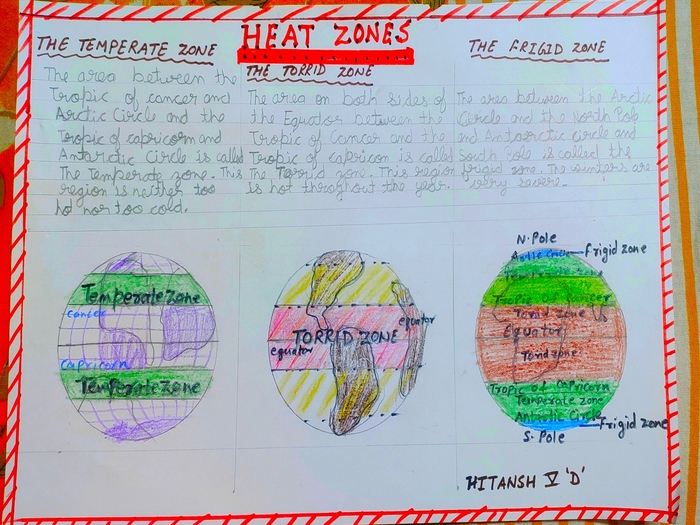 HEAT ZONES
THE TEMPERATE ZONE
The area between the
Tropic of cancer and
Arctic Circle and the
Tropic of capricorn and
Antarctic Circle is called
The Temperate zone. This
region is neither too
hot nor too cold.
THE TORRID ZONE
The area on both sides of
the Equator between the
Tropic of Cancer and the
Tropic of capricon is called
The Torrid zone. This region
is hot throughout the year.
THE FRIGID ZONE
The area between the Arctic
Circle and the North Pole
and Antarctic circle and
South Pole is called the
frigid zone. The winters are
very severe.
Temperate zone
Cancer
Capricorn
Temperate zone
equator
TORRID ZONE
equator
N. Pole
Arctic Circle Frigid zone
Temperate Zone
Tropic of Cancer
Torrid zone
Equator
Torrid zone
Tropic of Capricorn
Temperate zone
Antarctic Circle
Frigid zone
S. Pole
HITANSH V 'D'